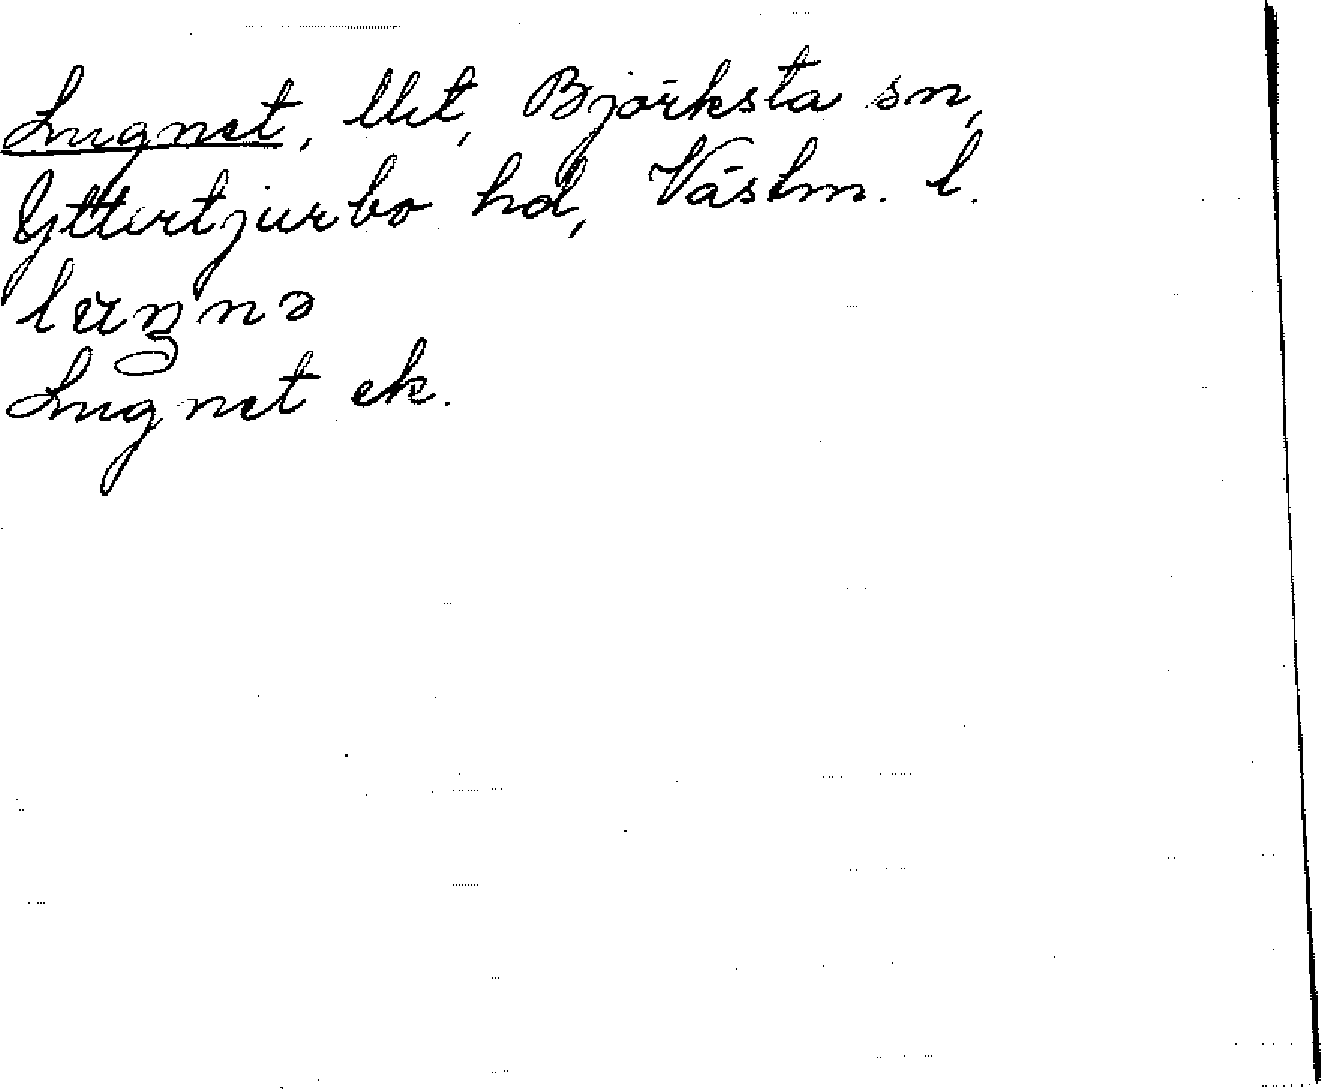 Lugnet, llet, Björksta sn,
Yttertjurbo hd, Västm. l.
Lugnet ek.